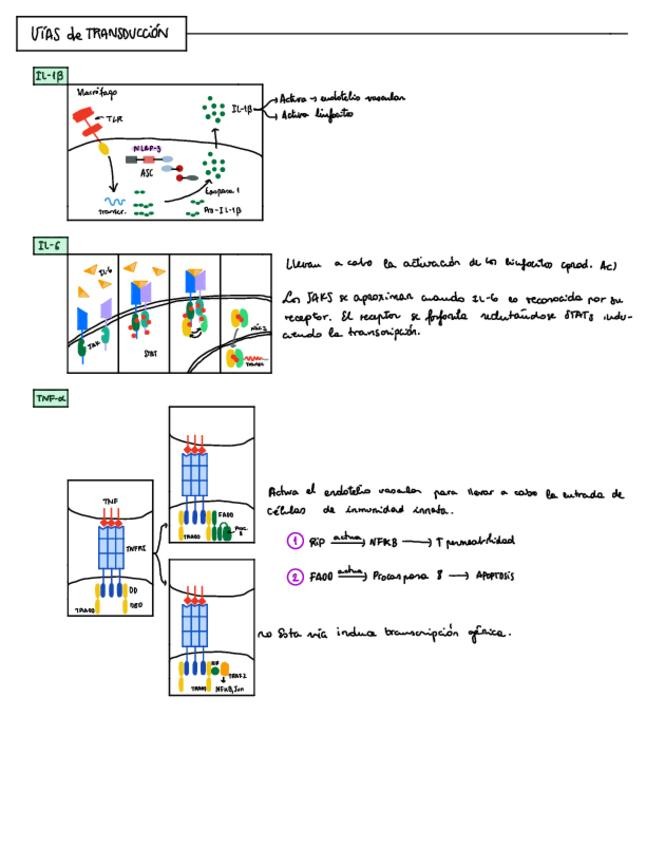 VÍAS de TRANSDUCCIÓN
IL-1β
Macrófago
TLR
NLRP-3
ASC
Transcr.
Caspasa 1
Pro-IL-1β
IL-1β
→ Activa → endotelio vascular
→ Activa linfocitos
IL-6
IL-6
JAK
STAT
Llevan a cabo la activación de los linfocitos (prod. Ac)
Los JAKS se aproximan cuando IL-6 es reconocida por su
receptor. El receptor se fosforila reclutándose STATs indu-
ciendo la transcripción.
TNF-α
TNF
TNFRI
DD
TRADD
FADD
TRADD
Proc.
8
Activa el endotelio vascular para llevar a cabo la entrada de
células de inmunidad innata.
① RIP activa→ NFKB → ↑ permeabilidad
② FADD activa→ Procaspasa 8 → APOPTOSIS
→ Esta vía induce transcripción génica.
RIP
TRAF2
TRADD
NFκB, Jun